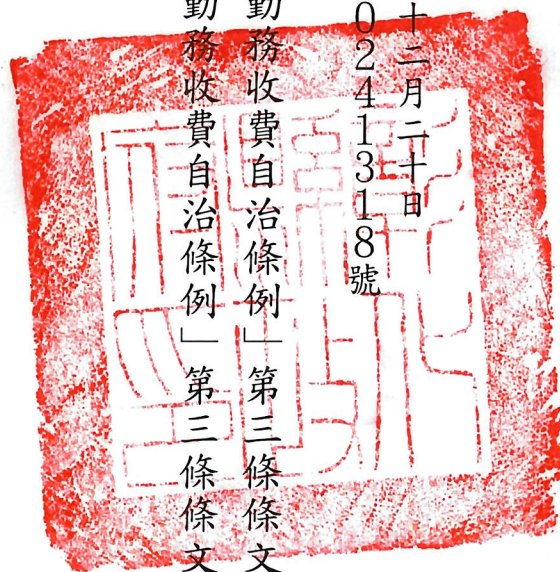 十二月二十日
０２４１３１８號
勤務收費自治條例」第三條條文
勤務收費自治條例」第三條條文